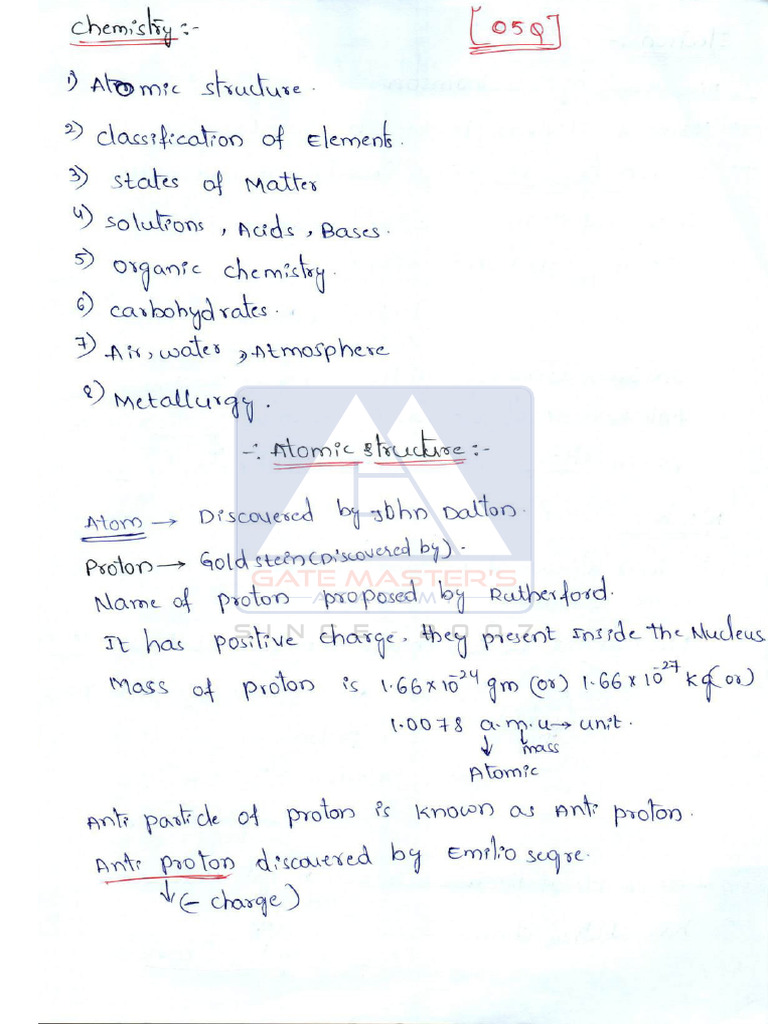 Chemistry:- [05Q]
1) Atomic structure.
2) classification of Elements.
3) states of Matter
4) solutions, Acids, Bases.
5) organic chemistry.
6) carbohydrates.
7) Air, water, Atmosphere
8) Metallurgy.
-: Atomic structure:-
Atom → Discovered by John Dalton.
Proton → Goldstein (Discovered by).
GATE MASTER'S
Name of proton proposed by Rutherford.
ACADEMY
It has positive charge. they present inside the Nucleus
SINCE-2007
Mass of proton is 1.66×10⁻²⁴ gm (or) 1.66×10⁻²⁷ kg (or)
1.0078 a.m.u → unit.
mass
Atomic
Anti particle of proton is known as Anti proton.
Anti proton discovered by Emilio segre.
(- charge)